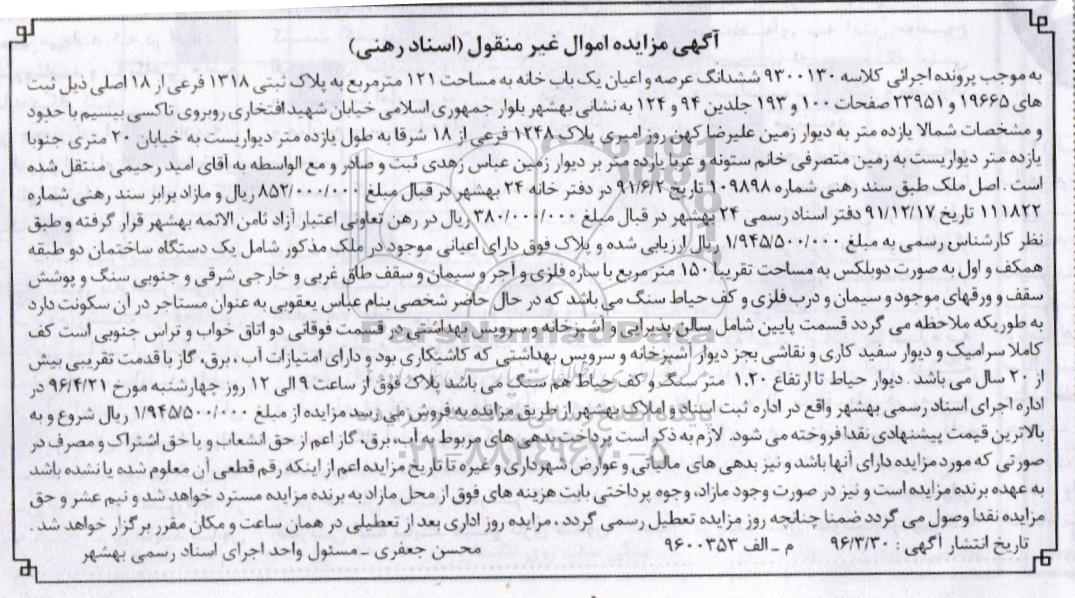 آگهی مزایده اموال غیر منقول (اسناد رهنی)
به موجب پرونده اجرائی کلاسه ۹۳۰۰۱۳۰ ششدانگ عرصه و اعیان یک باب خانه به مساحت ۱۲۱ مترمربع به پلاک ثبتی ۱۳۱۸ فرعی از ۱۸ اصلی ذیل ثبت
های ۱۹۶۶۵ و ۲۳۹۵۱ صفحات ۱۰۰ و ۱۹۳ جلدین ۹۴ و ۱۲۴ به نشانی بهشهر بلوار جمهوری اسلامی خیابان شهید افتخاری روبروی تاکسی بیسیم با حدود
و مشخصات شمالا یازده متر به دیوار زمین علیرضا کهن روز امیری پلاک ۱۲۴۸ فرعی از ۱۸ شرقا به طول یازده متر دیواریست به خیابان ۲۰ متری جنوبا
یازده متر دیواریست به زمین متصرفی خانم ستونه و غربا یازده متر بر دیوار زمین عباس زهدی ثبت و صادر و مع الواسطه به آقای امید رحیمی منتقل شده
است . اصل ملک طبق سند رهنی شماره ۱۰۹۸۹۸ تاریخ ۹۱/۶/۲ در دفتر خانه ۲۴ بهشهر در قبال مبلغ ۸۵۲/۰۰۰/۰۰۰ ریال و مازاد برابر سند رهنی شماره
۱۱۱۸۲۲ تاریخ ۹۱/۱۲/۱۷ دفتر اسناد رسمی ۲۴ بهشهر در قبال مبلغ ۳۸۰/۰۰۰/۰۰۰ ریال در رهن تعاونی اعتبار آزاد ثامن الائمه بهشهر قرار گرفته و طبق
نظر کارشناس رسمی به مبلغ ۱/۹۴۵/۵۰۰/۰۰۰ ریال ارزیابی شده و پلاک فوق دارای اعیانی موجود در ملک مذکور شامل یک دستگاه ساختمان دو طبقه
همکف و اول به صورت دوبلکس به مساحت تقریبا ۱۵۰ متر مربع با سازه فلزی و آجر و سیمان و سقف طاق غربی و خارجی شرقی و جنوبی سنگ و پوشش
سقف و ورقهای موجود و سیمان و درب فلزی و کف حیاط سنگ می باشد که در حال حاضر شخصی بنام عباس یعقوبی به عنوان مستاجر در آن سکونت دارد
به طوریکه ملاحظه می گردد قسمت پایین شامل سالن پذیرایی و آشپزخانه و سرویس بهداشتی در قسمت فوقانی دو اتاق خواب و تراس جنوبی است کف
کاملا سرامیک و دیوار سفید کاری و نقاشی بجز دیوار آشپزخانه و سرویس بهداشتی که کاشیکاری بود و دارای امتیازات آب ، برق ، گاز با قدمت تقریبی بیش
از ۲۰ سال می باشد . دیوار حیاط تا ارتفاع ۱.۲۰ متر سنگ و کف حیاط هم سنگ می باشد پلاک فوق از ساعت ۹ الی ۱۲ روز چهارشنبه مورخ ۹۶/۴/۲۱ در
اداره اجرای اسناد رسمی بهشهر واقع در اداره ثبت اسناد و املاک بهشهر از طریق مزایده به فروش می رسد مزایده از مبلغ ۱/۹۴۵/۵۰۰/۰۰۰ ریال شروع و به
بالاترین قیمت پیشنهادی نقدا فروخته می شود. لازم به ذکر است پرداخت بدهی های مربوط به آب، برق، گاز اعم از حق انشعاب و یا حق اشتراک و مصرف در
صورتی که مورد مزایده دارای آنها باشد و نیز بدهی های مالیاتی و عوارض شهرداری و غیره تا تاریخ مزایده اعم از اینکه رقم قطعی آن معلوم شده یا نشده باشد
به عهده برنده مزایده است و نیز در صورت وجود مازاد، وجوه پرداختی بابت هزینه های فوق از محل مازاد به برنده مزایده مسترد خواهد شد و نیم عشر و حق
مزایده نقدا وصول می گردد ضمنا چنانچه روز مزایده تعطیل رسمی گردد ، مزایده روز اداری بعد از تعطیلی در همان ساعت و مکان مقرر برگزار خواهد شد .
تاریخ انتشار آگهی : ۹۶/۳/۳۰ م - الف ۹۶۰۰۳۵۳
محسن جعفری - مسئول واحد اجرای اسناد رسمی بهشهر
ParsNamadData
۰۲۱-۸۸۳۴۹۶۷۰-۵